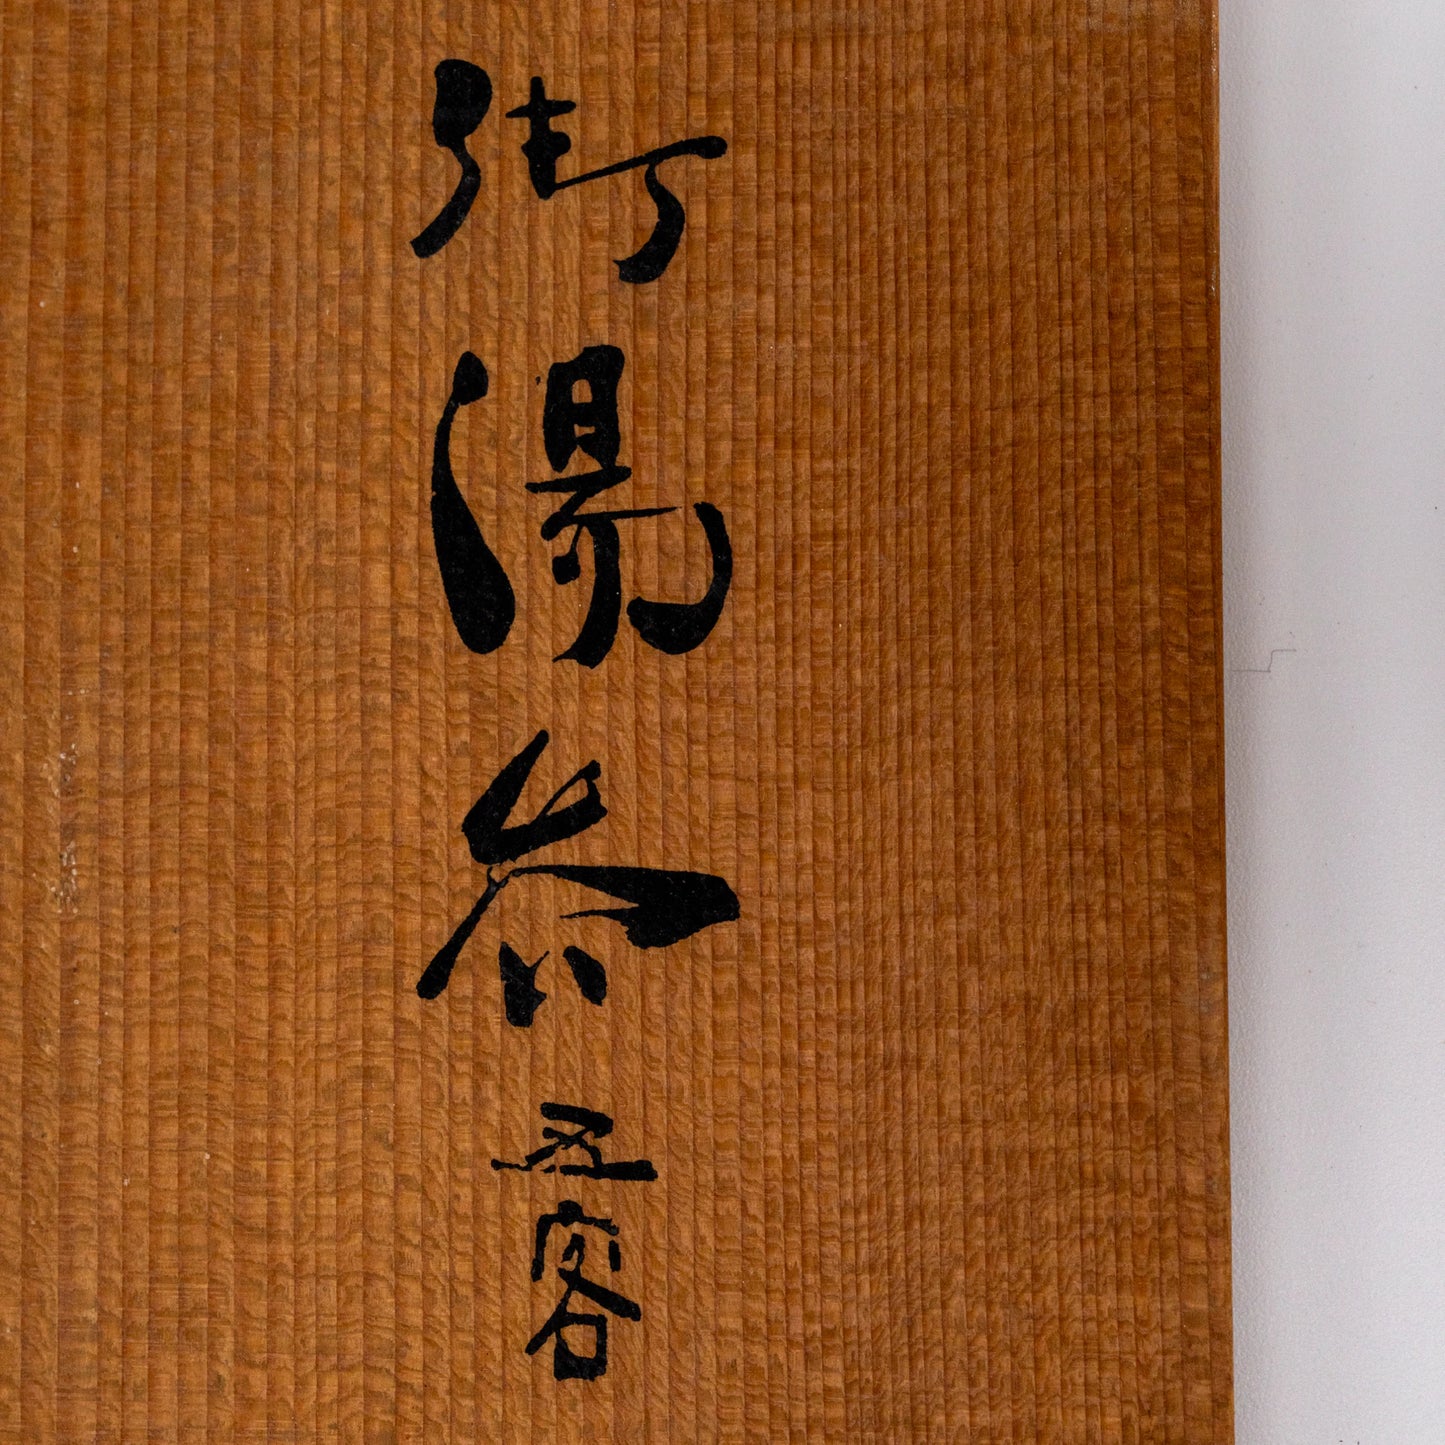 御湯呑 五客